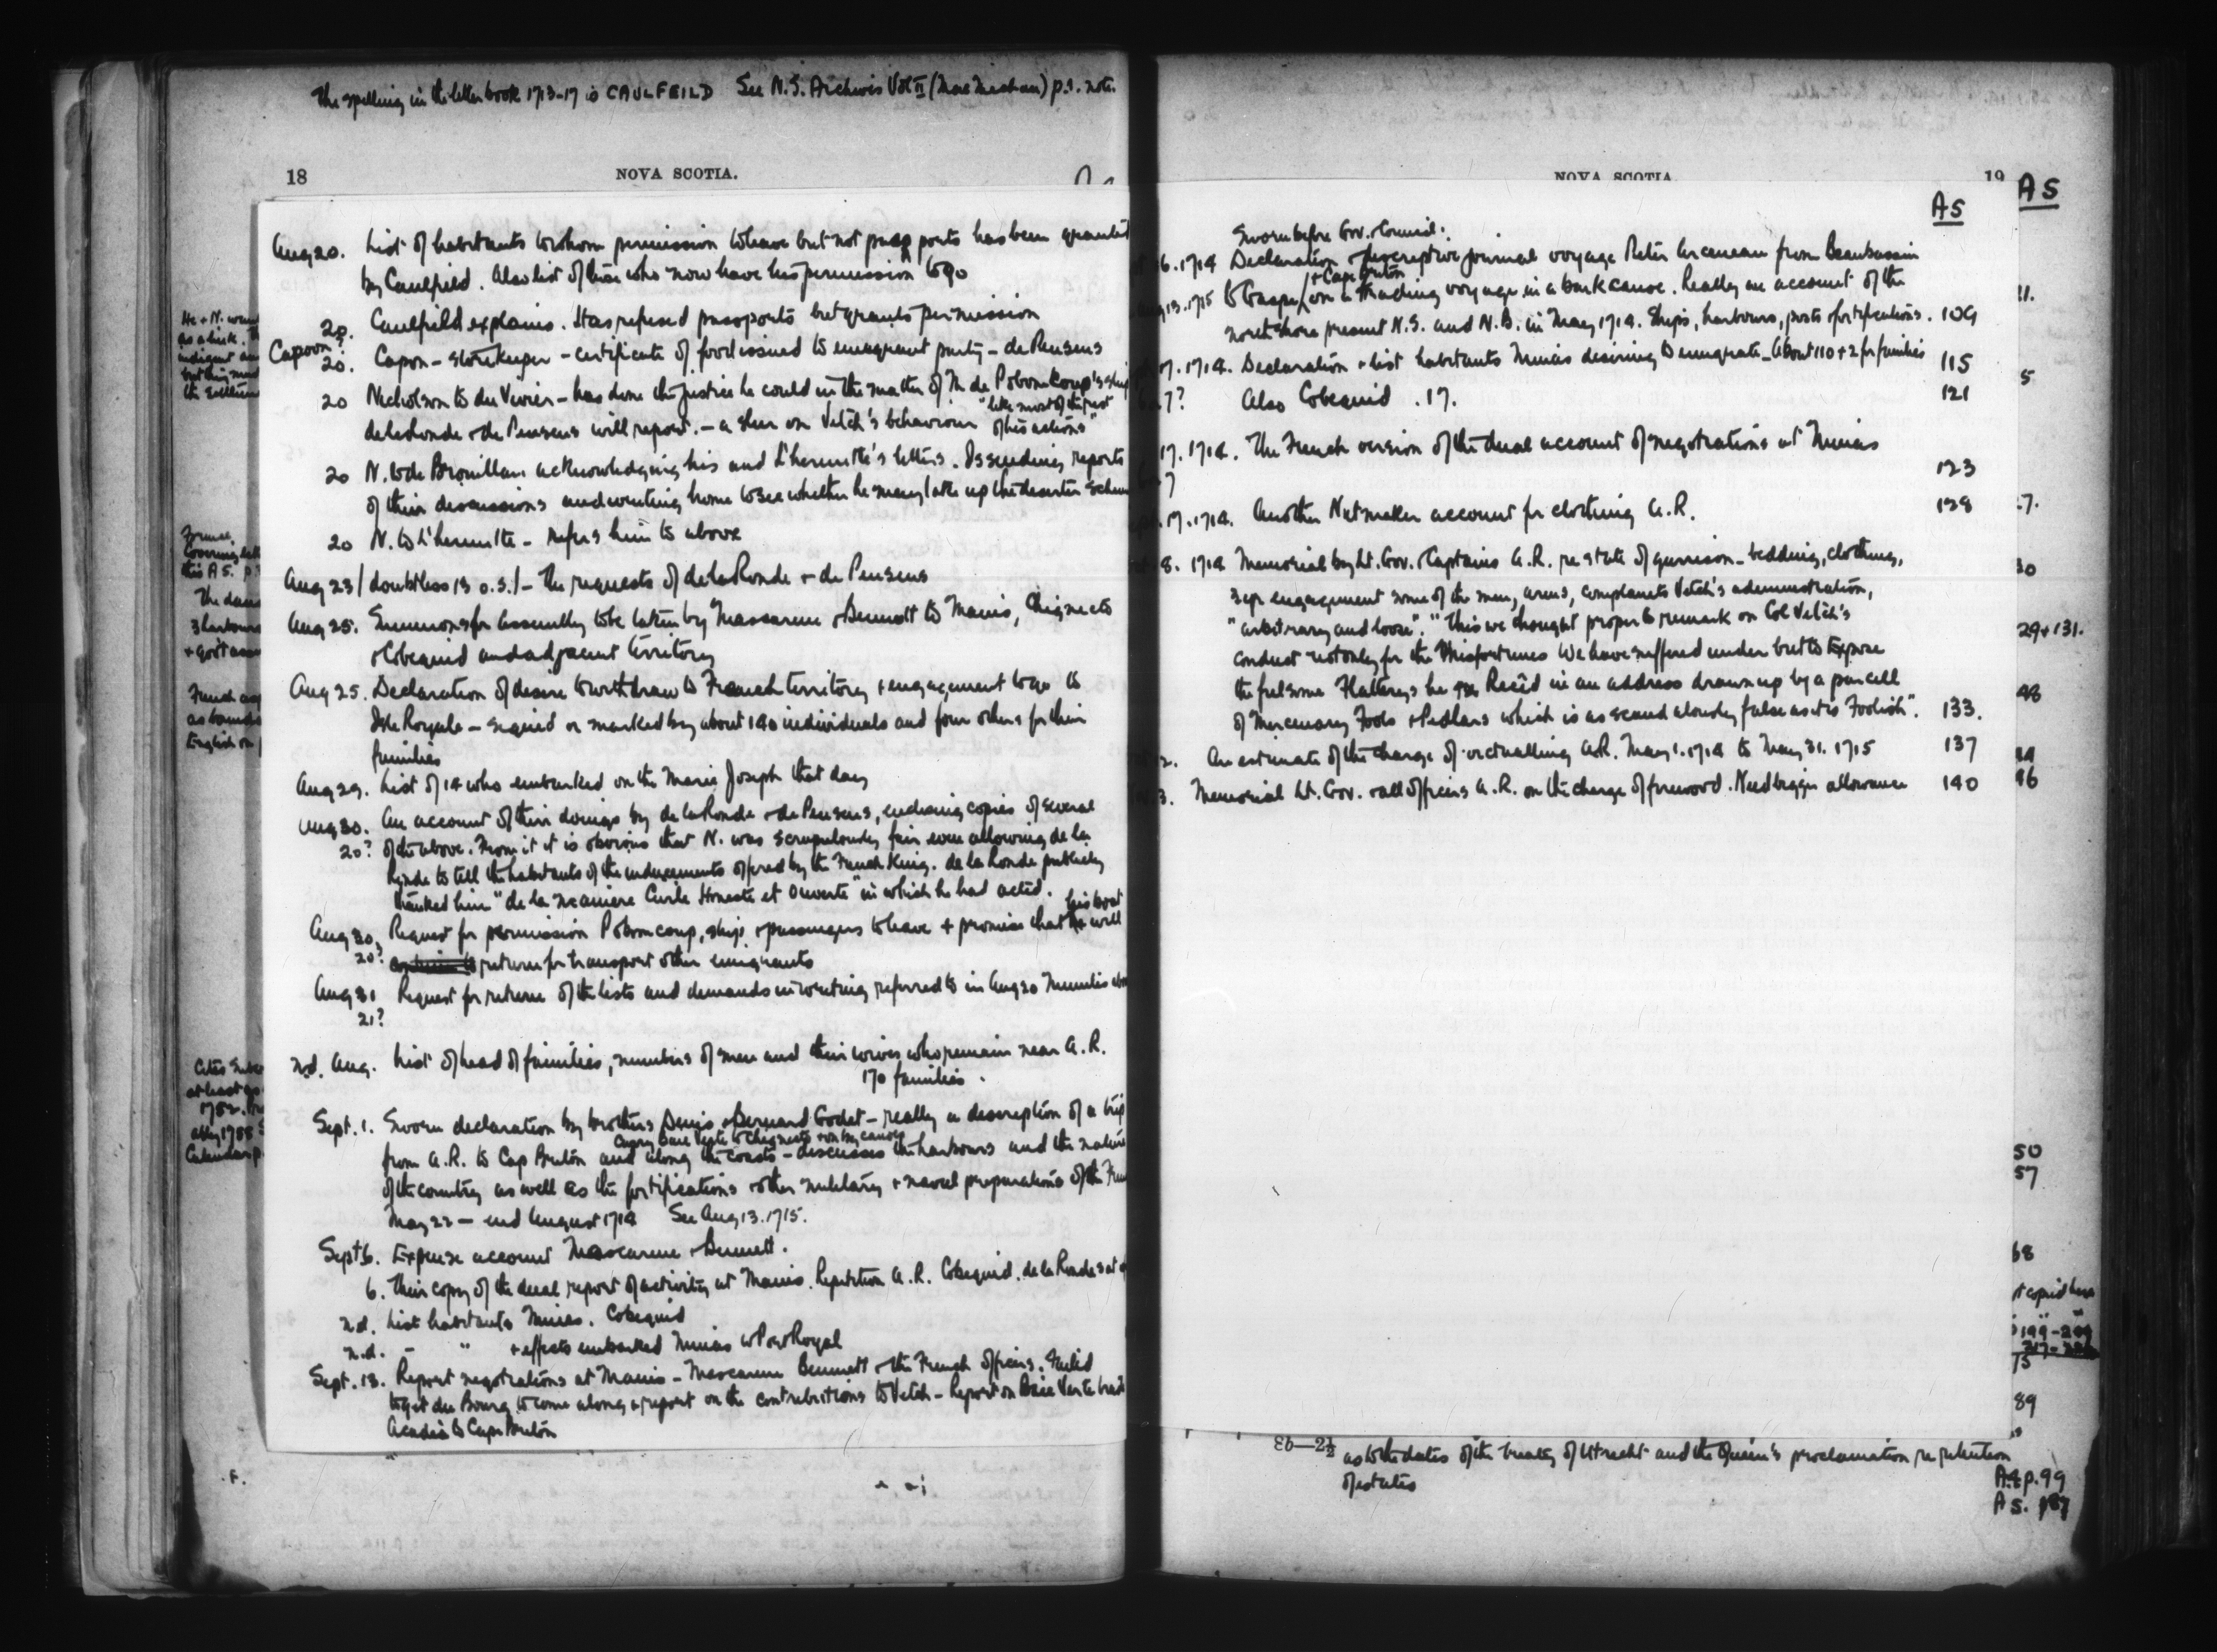 The spelling in the letter book 1713-17 is CAULFEILD See N.S. Archives Vol II (MacMechan) p.1. note.
18 NOVA SCOTIA.
Aug 20. List of habitants to whom permission to leave but not passports has been granted
by Caulfield. Also list of those who now have his permission to go
20. Caulfield explains. Has refused passports but grants permission
Capoon?
20. Capon - storekeeper - certificate of food issued to emigrant party - de Pensens
20 Nicholson to du Vivier - has done the justice he could in the matter of M. de Pobomkoup's ship
de la Ronde & de Pensens will report. - a slur on Vetch's behaviour "like most of the rest of his actions"
20 N. to de Brouillan acknowledging his and L'hermitte's letters. Is sending reports
of their discussions and writing home to see whether he may take up the deserter
20 N. to L'hermitte - refers him to above
Aug 23 / doubtless 13 o.s. / - the requests of de la Ronde + de Pensens
Aug 25. Summons for Assembly to be taken by Mascarene & Bennett to Manis, Chignecto
& Cobequid and adjacent territory
Aug 25. Declaration of desire to withdraw to French territory + engagement to go to
Isle Royale - signed or marked by about 140 individuals and four others for their
families
Aug 29. List of 14 who embarked on the Marie Joseph that day
Aug 30. An account of their doings by de la Ronde & de Pensens, enclosing copies of several
20? of the above. From it it is obvious that N. was scrupulously fair even allowing de la
Ronde to tell the habitants of the inducements offered by the French King. de la Ronde publicly
thanked him "de la maniere Civile Honeste et Ouverte" in which he had acted.
Aug 30, Request for permission Pobomcoup, ships & passengers to leave + promise that his boat will
20? return for transport other emigrants
Aug 31 Request for return of the lists and demands in writing referred to in Aug 20
21?
n.d. Aug. List of head of families, numbers of men and their wives who remain near A.R.
170 families.
Sept. 1. Sworn declaration by brothers Denis & Bernard Godet - really a description of a trip
from A.R. to Cap Breton and along the coasts - discusses the harbours and the nature
of the country as well as the fortifications & other military + naval preparations of the
May 22 - end August 1714 See Aug 13. 1715.
Sept 6. Expense account Mascarene & Bennett.
6. Their copy of the dual report of activity at Manis. Repetition A.R. Cobequid.
n.d. List habitants Minas. Cobequid
n.d. - " + effects embarked Minas to Port Royal
Sept. 13. Report negotiations at Manis - Mascarene Bennett & the French officers. Failed
to get du Bourg to come along & report on the contributions to Vetch - Report on Baie Verte
Acadia to Cape Breton
NOVA SCOTIA 19
A5
A5
Sworn before Gov. & Council:
6. 1714 Declaration & descriptive journal voyage Peter Arceneau from Beaubassin
Aug 13. 1715 to Gaspe / + Cape Breton / on a trading voyage in a bark canoe. Really an account of the
north shore present N.S. and N.B. in May 1714. Ships, harbours, posts & fortifications. 109
17. 1714. Declaration & list habitants Minas desiring to emigrate - About 110 + 2 for families 115
7? Also Cobequid . 17. 121
17. 1714. The French version of the dual account of negotiations at Minas
7 123
17. 1714. Another Nutmaker account for clothing A.R. 128
8. 1714 Memorial by Lt. Gov. & Captains A.R. re state of garrison - bedding, clothing,
3 yr engagement some of the men, arms, complaints Vetch's administration,
"arbitrary and loose". "This we thought proper to remark on Col Vetch's
conduct not only for the Misfortunes We have suffered under but to Expose
the fulsome Flatterys he has Rec'd in an address drawn up by a parcell
of Mercenary Fools & Pedlars which is as scandalously false as it is Foolish". 133.
2. An estimate of the charge of victualling A.R. May 1. 1714 to May 31. 1715 137
3. Memorial Lt. Gov. & all officers A.R. on the charge of firewood. Need bigger allowance 140
29 + 131.
50
57
68
89
as to the dates of the treaty of Utrecht and the Queen's proclamation re retention
of estates
A4 p. 99
A5. p 87